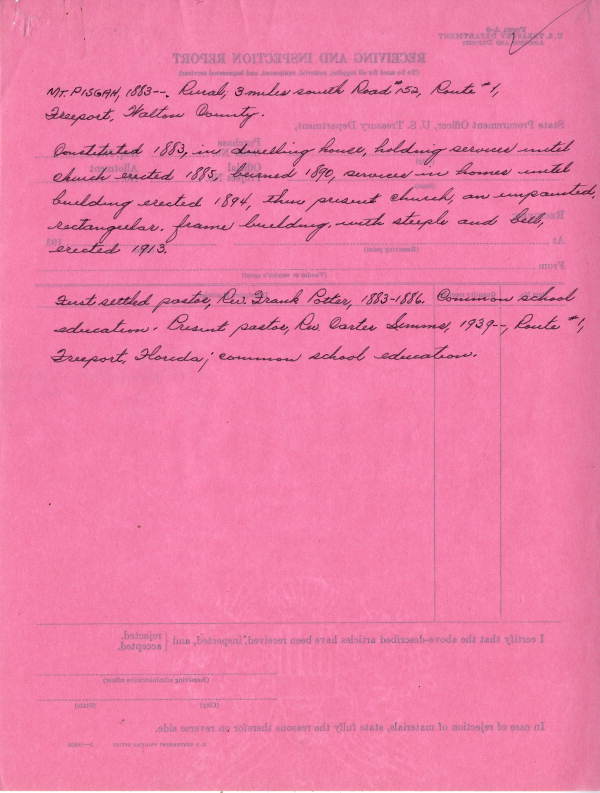 MT. PISGAH, 1883--. Rural, 3 miles south Road #152, Route #1,
Freeport, Walton County.
Constituted 1883, in dwelling house, holding services until
church erected 1885, burned 1890, services in homes until
building erected 1894, then present church, an unpainted,
rectangular, frame building, with steeple and bell,
erected 1913.
First settled pastor, Rev. Frank Potter, 1883-1886. Common school
education. Present pastor, Rev. Carter Simms, 1939--, Route #1,
Freeport, Florida; common school education.
U.S. TREASURY DEPARTMENT
RECEIVING AND INSPECTION REPORT
(To be used for all supplies, material, equipment, and impersonal services)
State Procurement Officer, U. S. Treasury Department,
Purchase
Official
Allotment
At
193
(Receiving point)
From
(Vendor or vendor's agent)
I certify that the above-described articles have been received, inspected, and
accepted.
rejected.
(Receiving administrative officer)
(City)
(State)
In case of rejection of materials, state fully the reasons therefor on reverse side.
U.S. GOVERNMENT PRINTING OFFICE